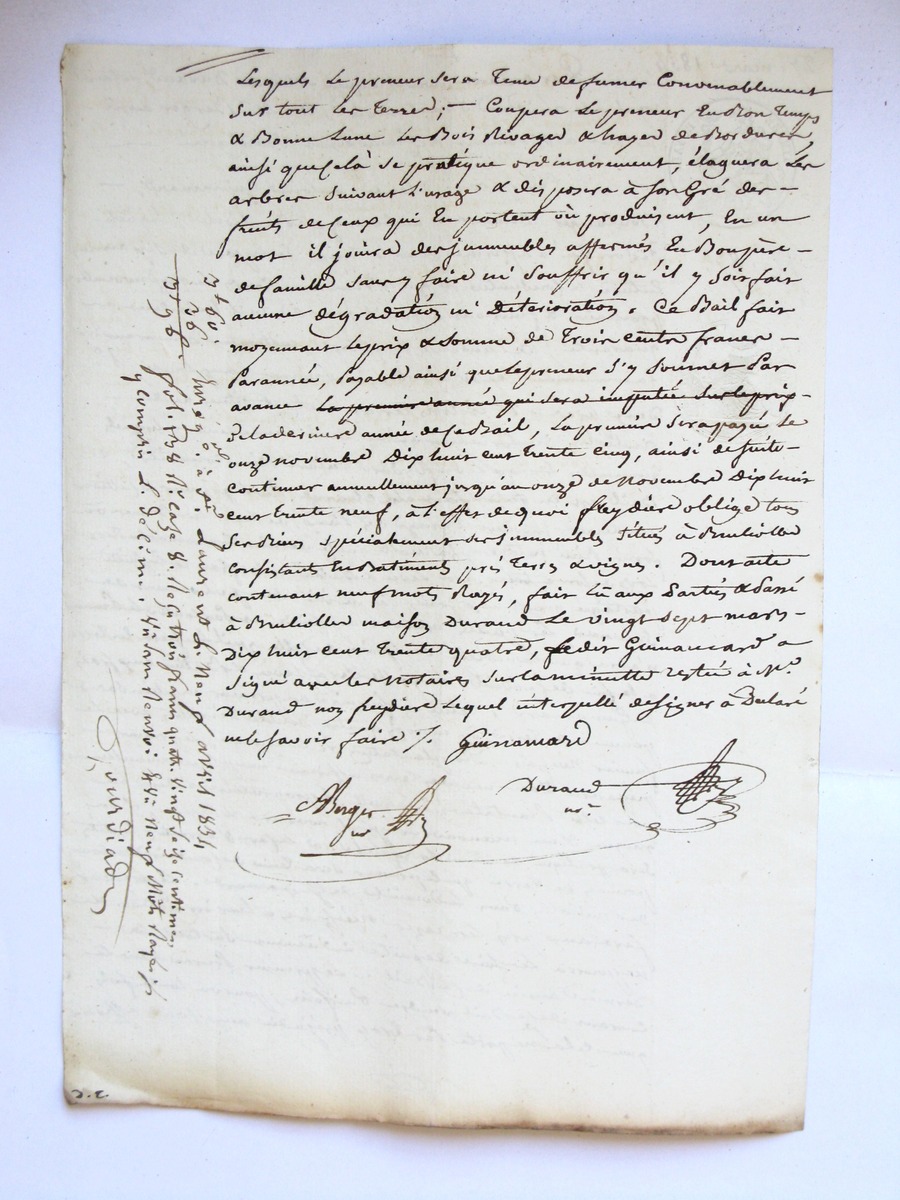 Lesquels Le preneur sera Tenu de fumer Convenablement
sur tout Les Terres; — Coupera Le preneur En Bon Temps
& Bonne Lune Les Bois Rivages & hayes de Bordures,
ainsi que Celà se pratique ordinairement, élaguera Les
arbres suivant L'usage & disposera à Son Gré des —
fruits de Ceux qui En portent où produisent, En un
mot il jouira des immeubles affermés En Bon père —
de famille sans y faire ni Souffrir qu'il y Soit fait
aucune dégradation ni Déterioration. Ce Bail fait
moyennant Le prix & Somme de Trois Cents francs —
Par année, Payable ainsi que Le preneur S'y Soumet Par
avance La première année qui sera imputée sur Le prix -
de La dernière année de Ce Bail, La première Sera payée Le
onze novembre Dix huit cent trente Cinq, ainsi de Suite
Continuer annuellement jusqu'au onze de Novembre Dix huit
Cent trente neuf, à L'effet de quoi freydière oblige tous
Ses Biens spécialement ses immeubles Situés à Brulliolles
Consistants En Batiments prés Terres & vignes. Dont acte
Contenant neuf mots Rayés, fait Lû aux Parties & Passé
à Brulliolles maison Durand Le vingt Sept mars -
Dix huit Cent trente quatre, Ledit Guinamard a
Signé avec Les Notaires Sur La minutte restée à Me.
Durand non freydière Lequel interpellé de Signer à Déclaré
ne Le Savoir faire ./. Guinamard
Durand
nre
ABerger
nre
3f 60.
36
3f 96.
Enreg. à St Laurent Le Neuf avril 1834
fol. Re. Case 8. Reçu trois francs quatre vingt seize Centimes
y Compris L. décime. Neuf Mots Rayés
2. 2.